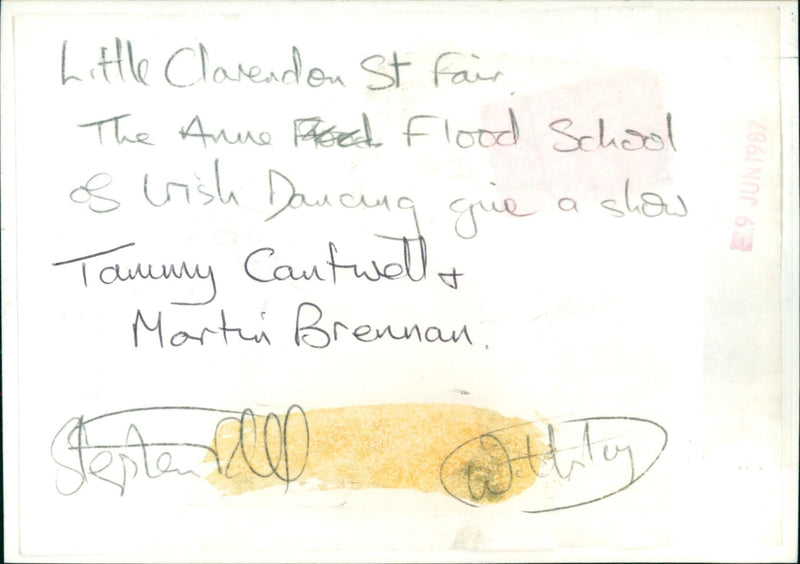 Little Clarendon St Fair.
The Anne Flood School
of Irish Dancing give a show
Tammy Cantwell +
Martin Brennan.
Stephen
9 JUN 1987